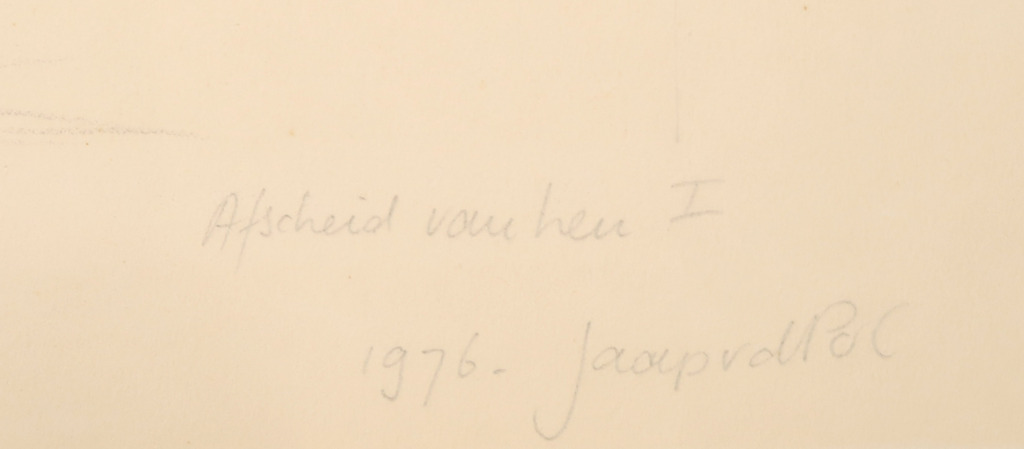 Afscheid van hen I
1976. Jaap vd Pol